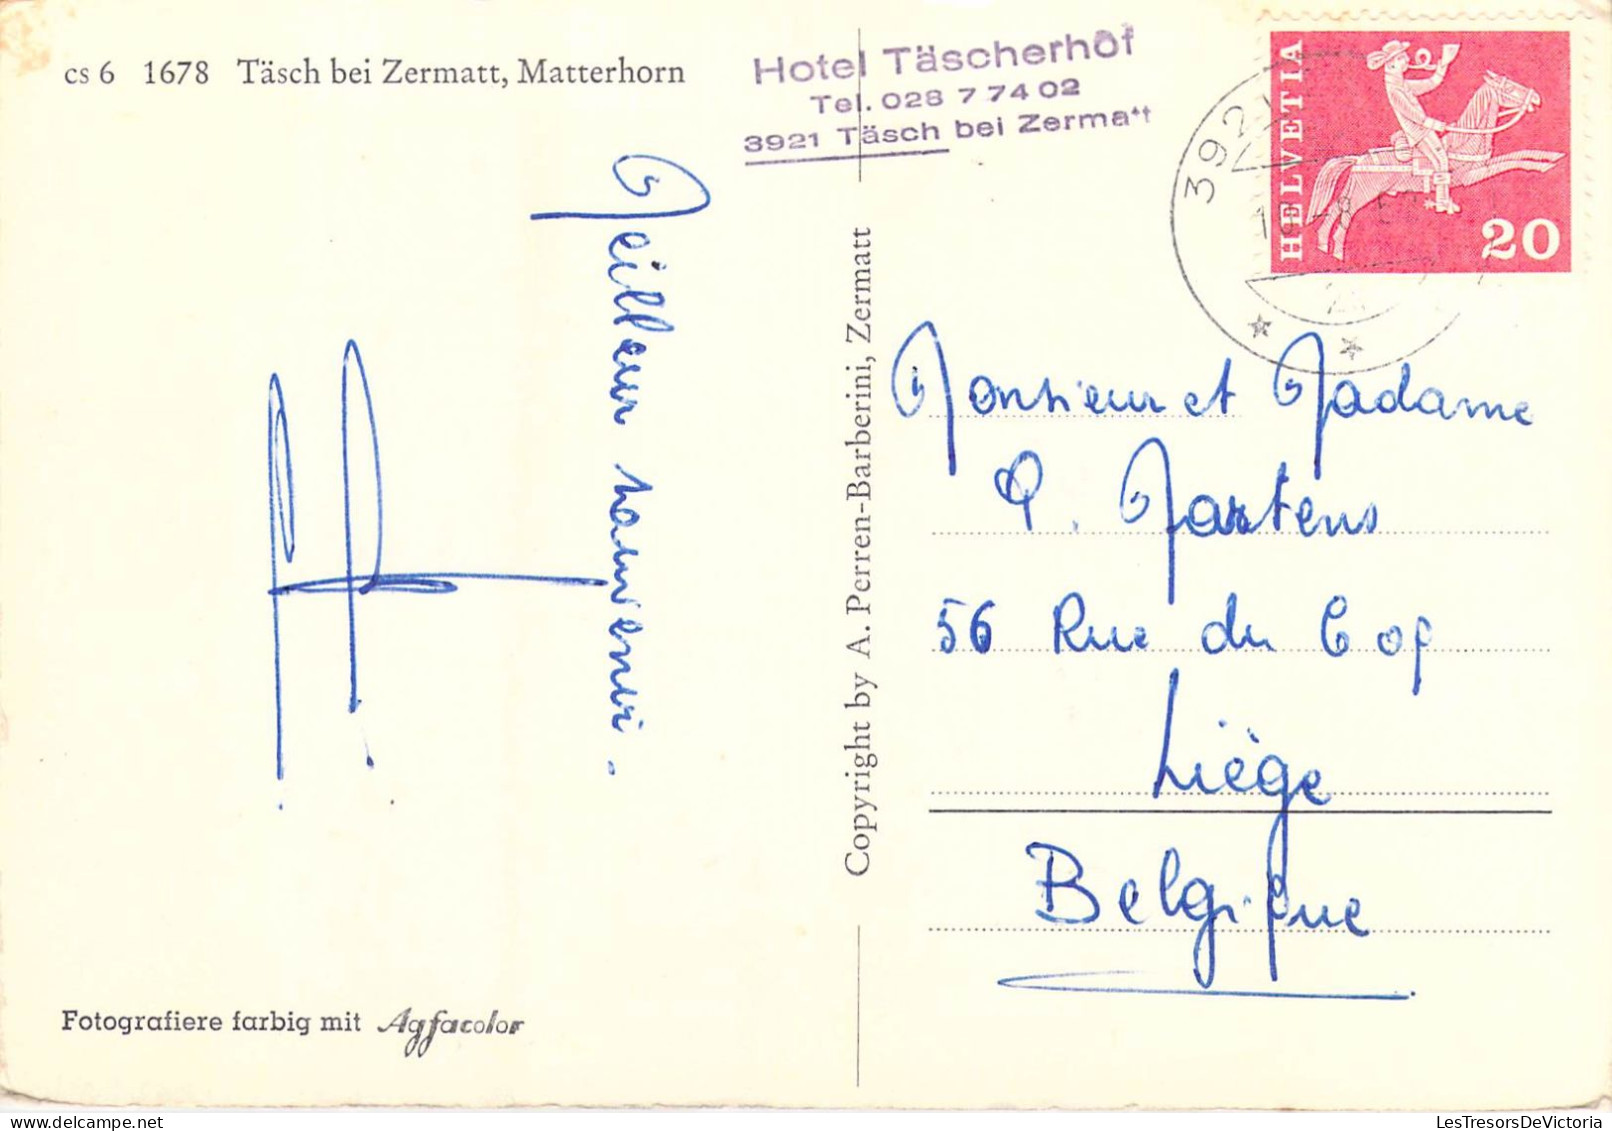 cs 6 1678 Täsch bei Zermatt, Matterhorn
Hotel Täscherhof
Tel. 028 7 74 02
3921 Täsch bei Zermatt
HELVETIA
20
392
Meilleur souvenir.
Copyright by A. Perren-Barberini, Zermatt
Monsieur et Madame
Martens
56 Rue du Coq
Liège
Belgique
Fotografiere farbig mit Agfacolor
LesTresorsDeVictoria